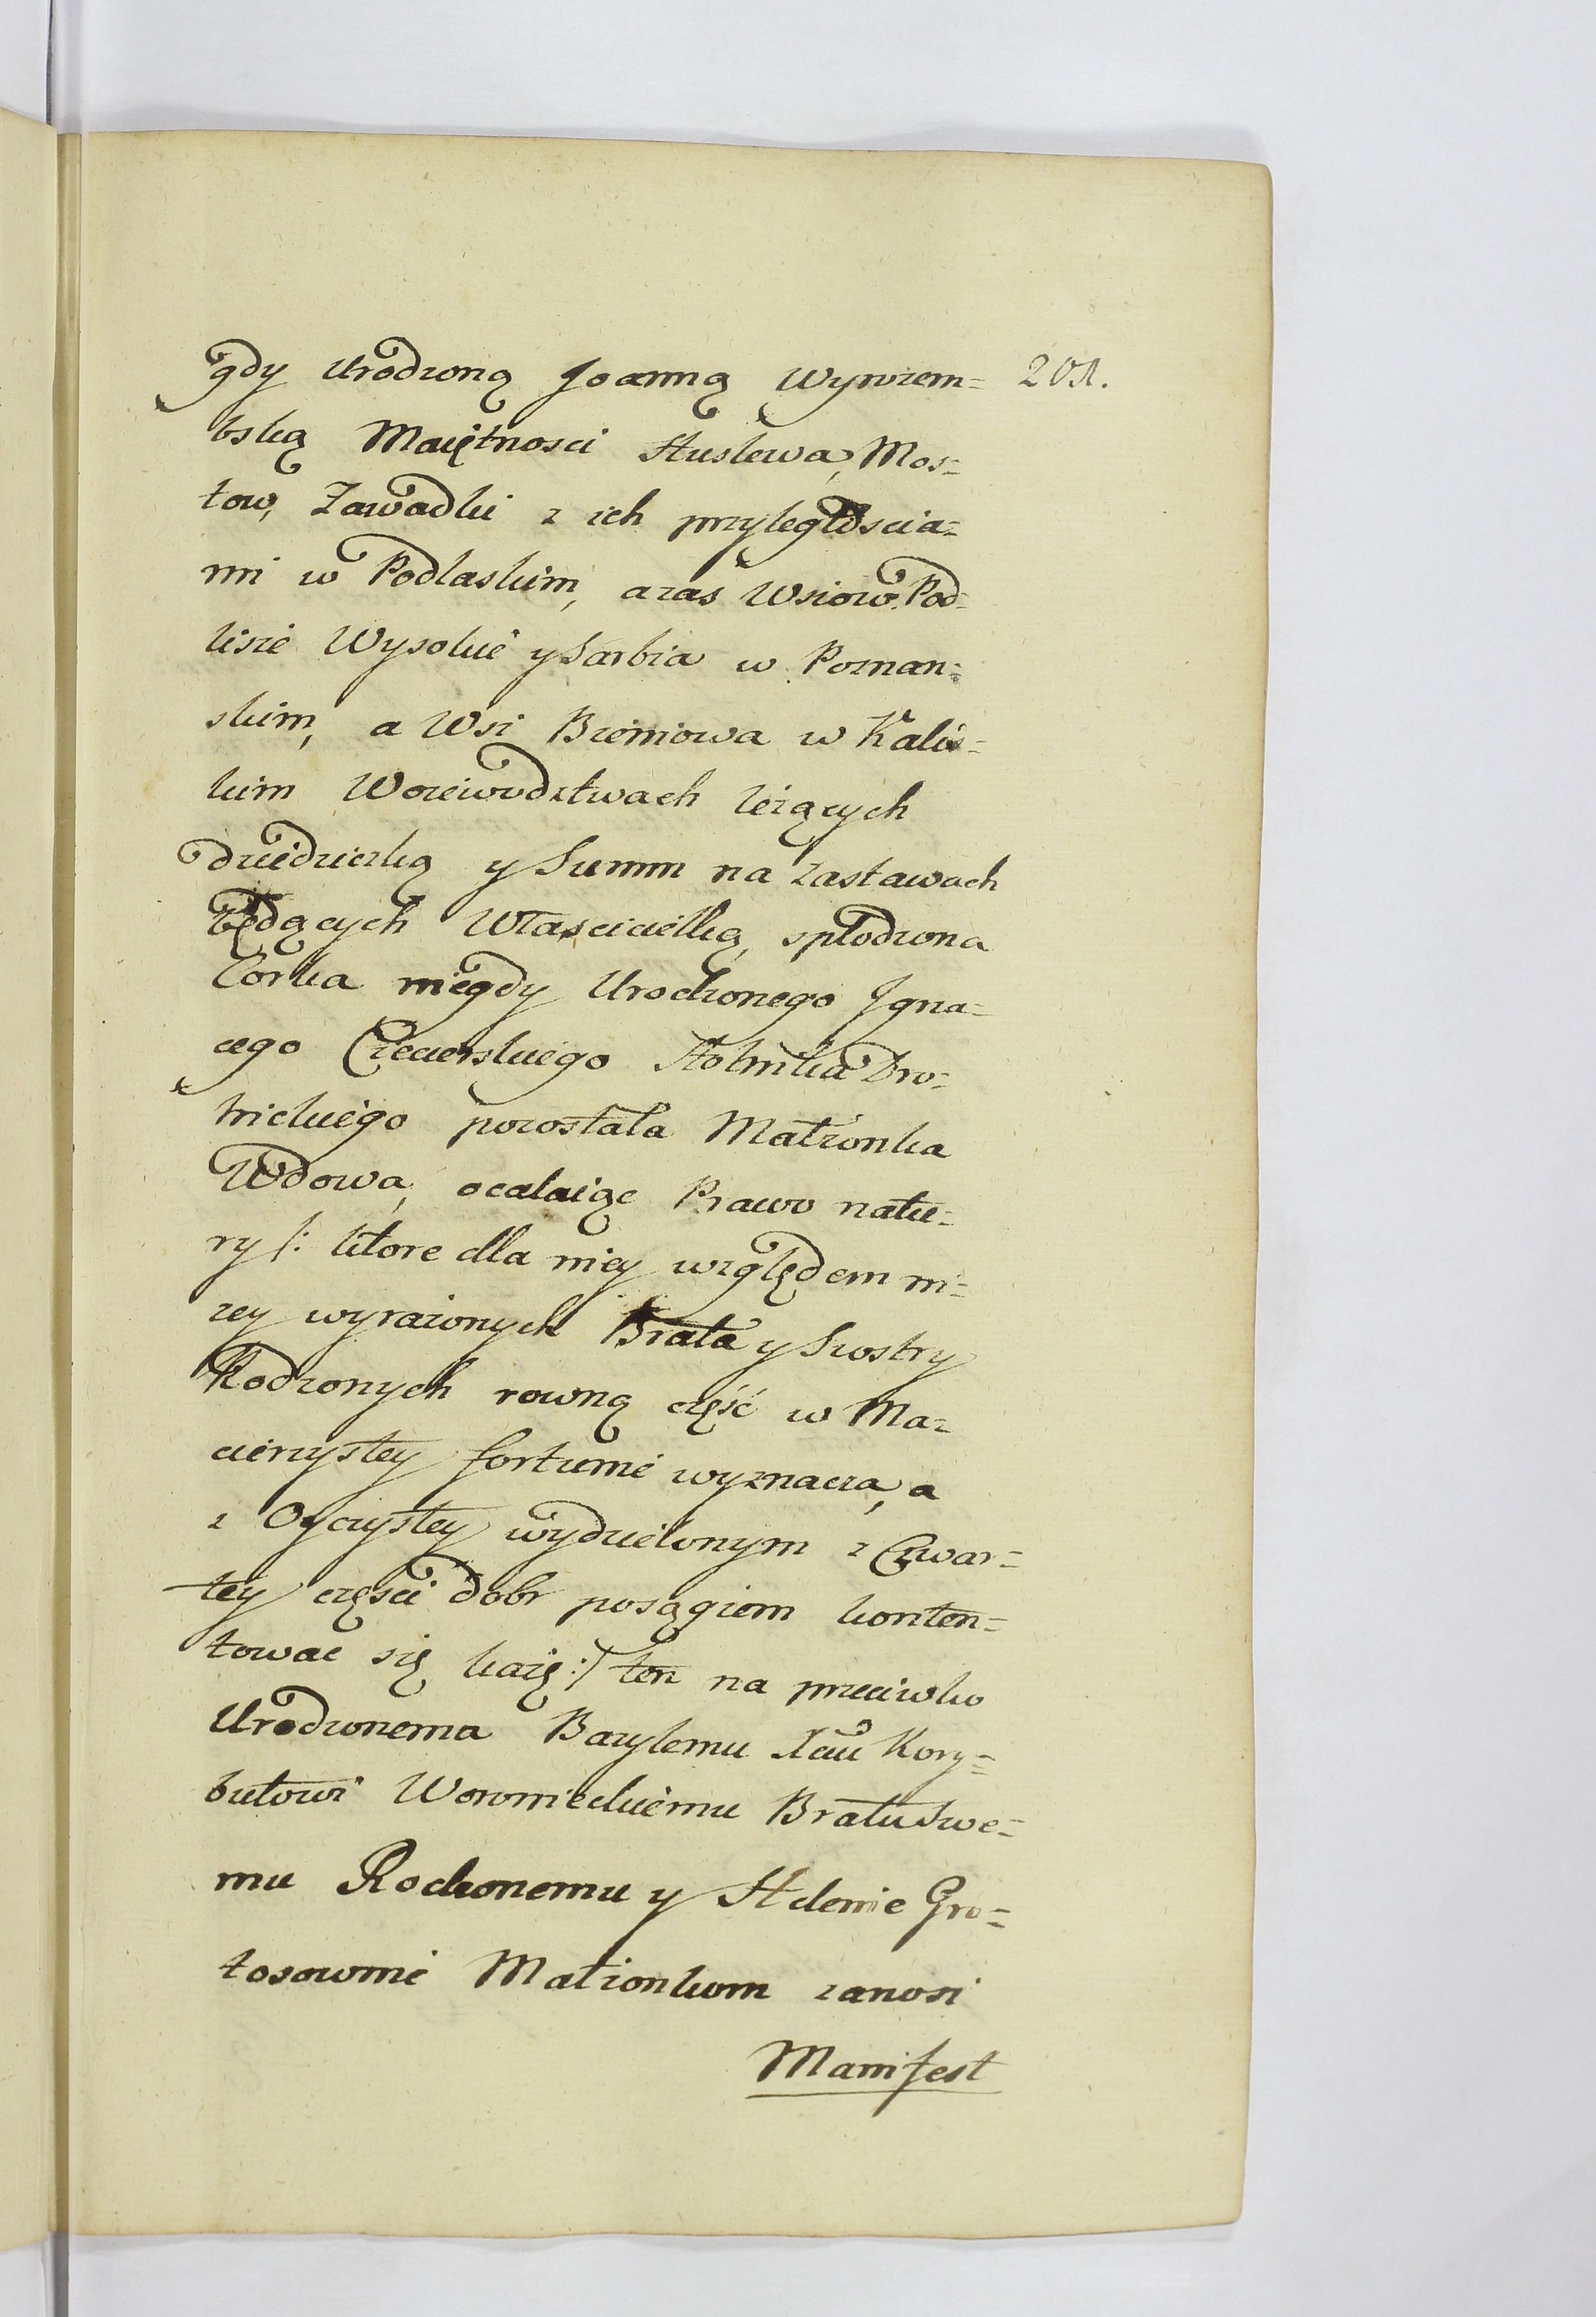 gdy Urodzoną Joanną Wyrozem= 201.
bską Maiętnosci Huslewa, Mos=
tow, Zawadki z ich przyległoscia=
mi w Podlaskim, azas Wsiow Pod=
lisie Wysokie y Sarbia w Poznan=
skim, a Wsi Bzeniowa w Kalis=
kim Woiewodztwach leżących
dziedziczką y Summ na zastawach
będących Własciciellką, spłodzona
Corka niegdy Urodzonego Igna=
cego Ciecierskiego Stolnika Dro=
hickiego pozostała Małżonka
Wdowa, ocalaiąc Prawo natu=
ry /: ktore dla niey względem ni=
zey wyrażonych Brata y Siostry
Rodzonych rowną część w Ma=
cierzystey fortunie wyznacza, a
z Oyczystey wydzielonym z Czwar=
tey częsci dobr posągiem konten=
towac się każe :/ ten na przeciwko
Urodzonemu Bazylemu Xciu Kory=
butowi Woronieckiemu Bratu Swe=
mu Rodzonemu y Helenie Gro=
tosownie Małżonkom zanosi
Manifest